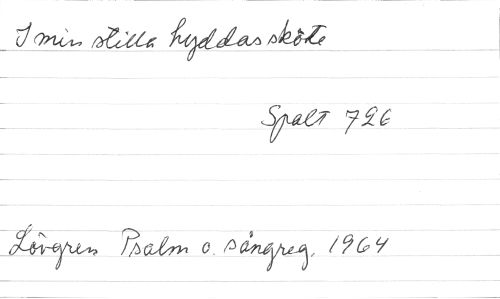 I min stilla hyddas sköte
Spalt 726
Lövgren Psalm o. sångreg. 1964